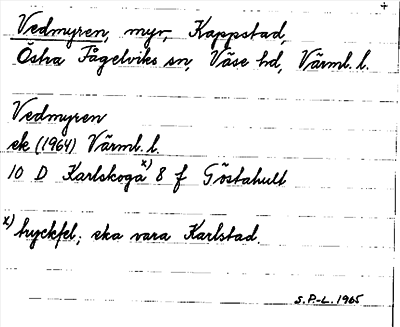 +
Vedmyren, myr, Kappstad,
Östra Fågelviks sn, Väse hd, Värml. l.
Vedmyren
ek (1964) Värml. l.
10 D Karlskoga x) 8 f Göstahult
x) tryckfel; ska vara Karlstad.
S.P.-L. 1965